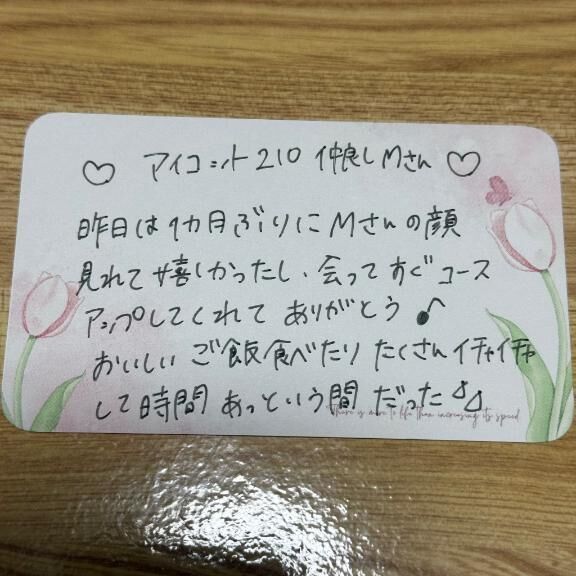 ♡ アイコット210 仲良しMさん ♡
昨日は1カ月ぶりにMさんの顔
見れて嬉しかったし、会ってすぐコース
アップしてくれて ありがとう♪
おいしい ご飯食べたり たくさんイチャイチャ
して時間 あっという間 だった
There is more to life than increasing its speed